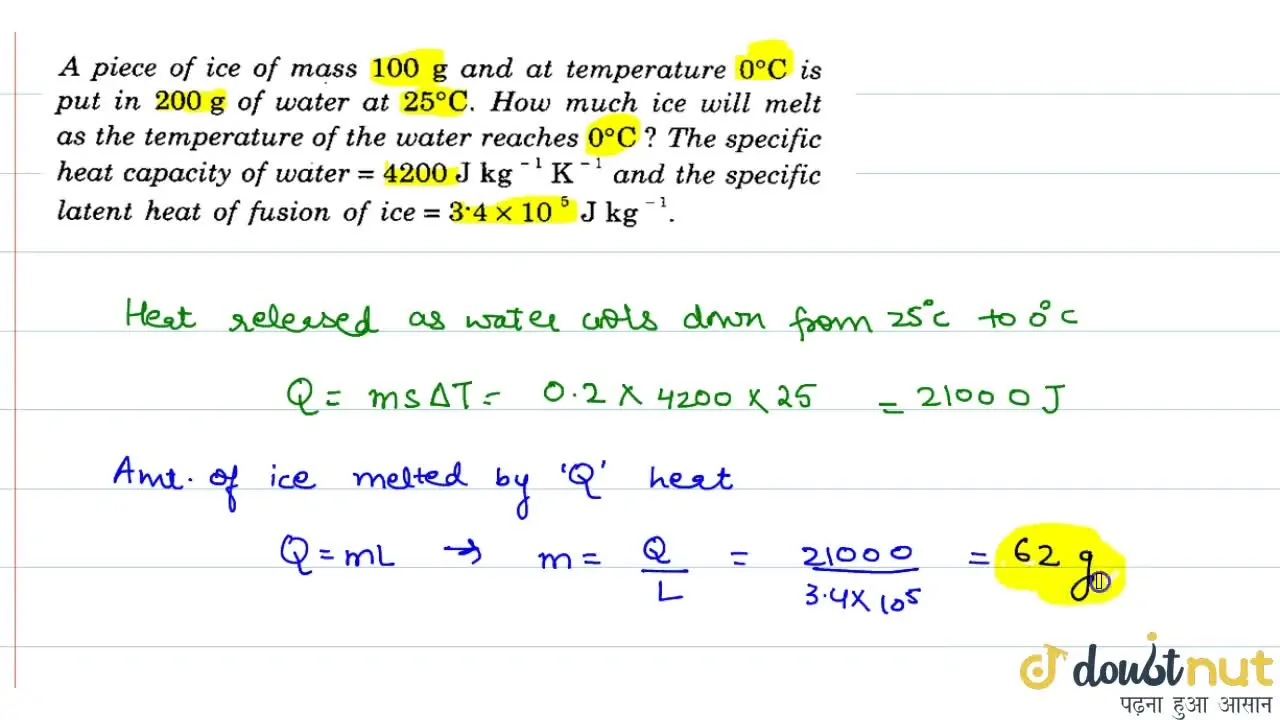 A piece of ice of mass 100 g and at temperature 0°C is
put in 200 g of water at 25°C. How much ice will melt
as the temperature of the water reaches 0°C ? The specific
heat capacity of water = 4200 J kg⁻¹ K⁻¹ and the specific
latent heat of fusion of ice = 3·4 × 10⁵ J kg⁻¹.
Heat released as water cools down from 25°C to 0°C
Q = msΔT = 0.2 × 4200 × 25 = 21000 J
Amt. of ice melted by 'Q' heat
Q = mL → m = Q/L = 21000/3.4×10⁵ = 62 g
doubtnut
पढ़ना हुआ आसान